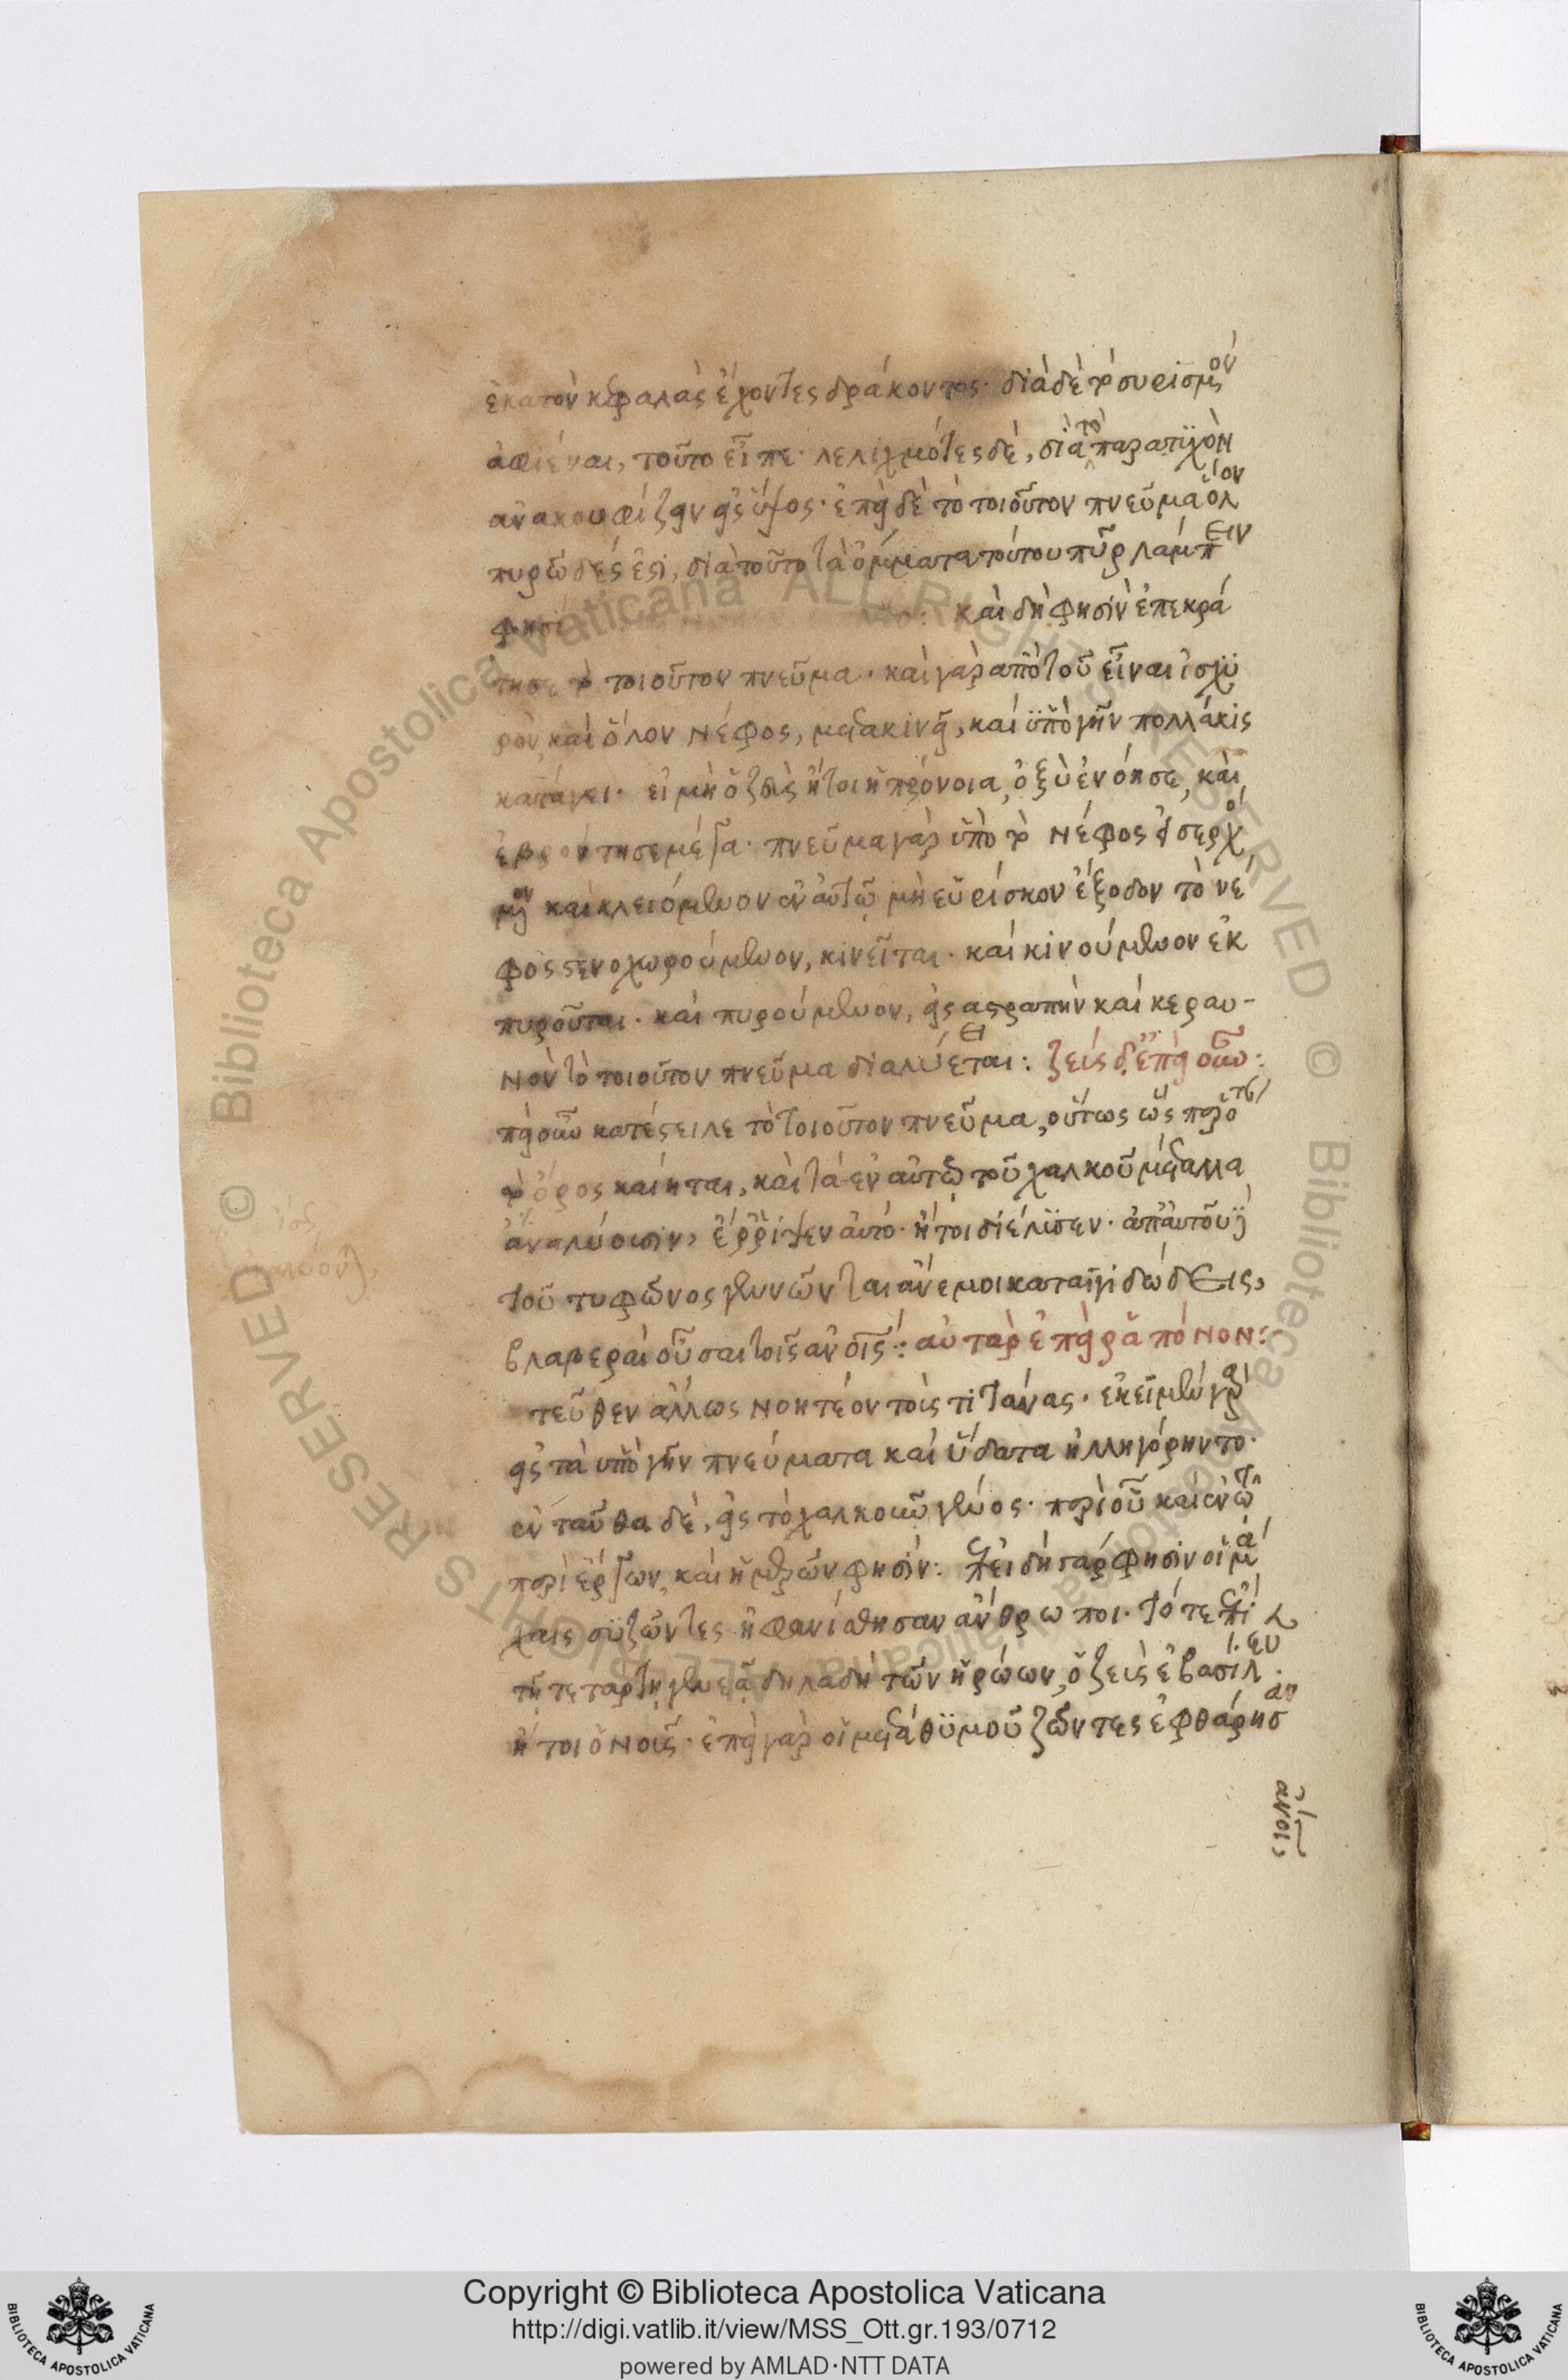 ἑκατὸν κεφαλὰς ἔχοντες δράκοντος· διὰ δὲ τὸ συρισμὸν
ἀφιέναι, τοῦτο εἶπε· λελιχμότες δὲ, διὰ τὸ παρ
ἀνακουφίζειν εἰς ὕψος· ἐπεὶ δὲ τὸ τοιοῦτον πνεῦμα ὅλον
πυρῶδές ἐστι, διὰ τοῦτο τὰ ὄμματα τούτου πῦρ λάμπειν
φησί καὶ δὴ φησὶν ἐπεκρά
τησε τὸ τοιοῦτον πνεῦμα· καὶ γὰρ ἀπὸ τοῦ εἶναι ἰσχυ
ρὸν καὶ ὅλον νέφος, μετακινεῖ, καὶ ὑπὸ γῆν πολλάκις
κατάγει· εἰ μὴ ὁ ζεὺς ἤτοι ἡ πρόνοια, ὀξὺ ἐνόησε, καὶ
ἐβρόντησε μέγα· πνεῦμα γὰρ ὑπὸ τὸ νέφος εἰσερχό
μενον καὶ κλειόμενον ἐν αὐτῷ μὴ εὑρίσκον ἔξοδον τὸ νέ
φος στενοχωρούμενον, κινεῖται· καὶ κινούμενον ἐκ
πυροῦται· καὶ πυρούμενον, εἰς ἀστραπὴν καὶ κεραυ-
νὸν τὸ τοιοῦτον πνεῦμα διαλύεται: ζεὺς δ' ἐπεὶ οὖν:
ἐπεὶ οὖν κατέστειλε τὸ τοιοῦτον πνεῦμα, οὕτως ὡς
τὸ ὄρος καίηται, καὶ τὰ ἐν αὐτῷ τοῦ χαλκοῦ μέταλλα
ἀναλύωσιν, ἔρριψεν αὐτό· ἤτοι διέλυσεν· ἀπ' αὐτοῦ
τοῦ τυφῶνος γεννῶνται ἄνεμοι καταιγιδώδεις,
βλαβεραὶ οὖσαι τοῖς ἀνοις: αὐτὰρ ἐπεί ρα πόνον:
τεῦθεν ἄλλως νοητέον τοὺς τιτάνας· ἐκεῖ μὲν γὰρ
εἰς τὰ ὑπὸ γῆν πνεύματα καὶ ὕδατα ἠλληγόρηντο·
ἐνταῦθα δὲ, εἰς τὸ χαλκοῦν γένος· περὶ οὗ καὶ ἐν τῷ
περὶ ἔργων καὶ ἡμερῶν φησίν: ἐπειδὴ γάρ φησιν οἱ μά
χαις συζῶντες ἠφανίσθησαν ἄνθρωποι· τότε ἐπὶ
τῇ τετάρτῃ γενεᾷ δηλαδὴ τῶν ἡρώων, ὁ ζεὺς ἐβασίλευ
ἤτοι ὁ νοῦς· ἐπεὶ γὰρ οἱ μετὰ θυμοῦ ζῶντες ἐφθάρησαν
ανοις
Copyright © Biblioteca Apostolica Vaticana
http://digi.vatlib.it/view/MSS_Ott.gr.193/0712
powered by AMLAD·NTT DATA